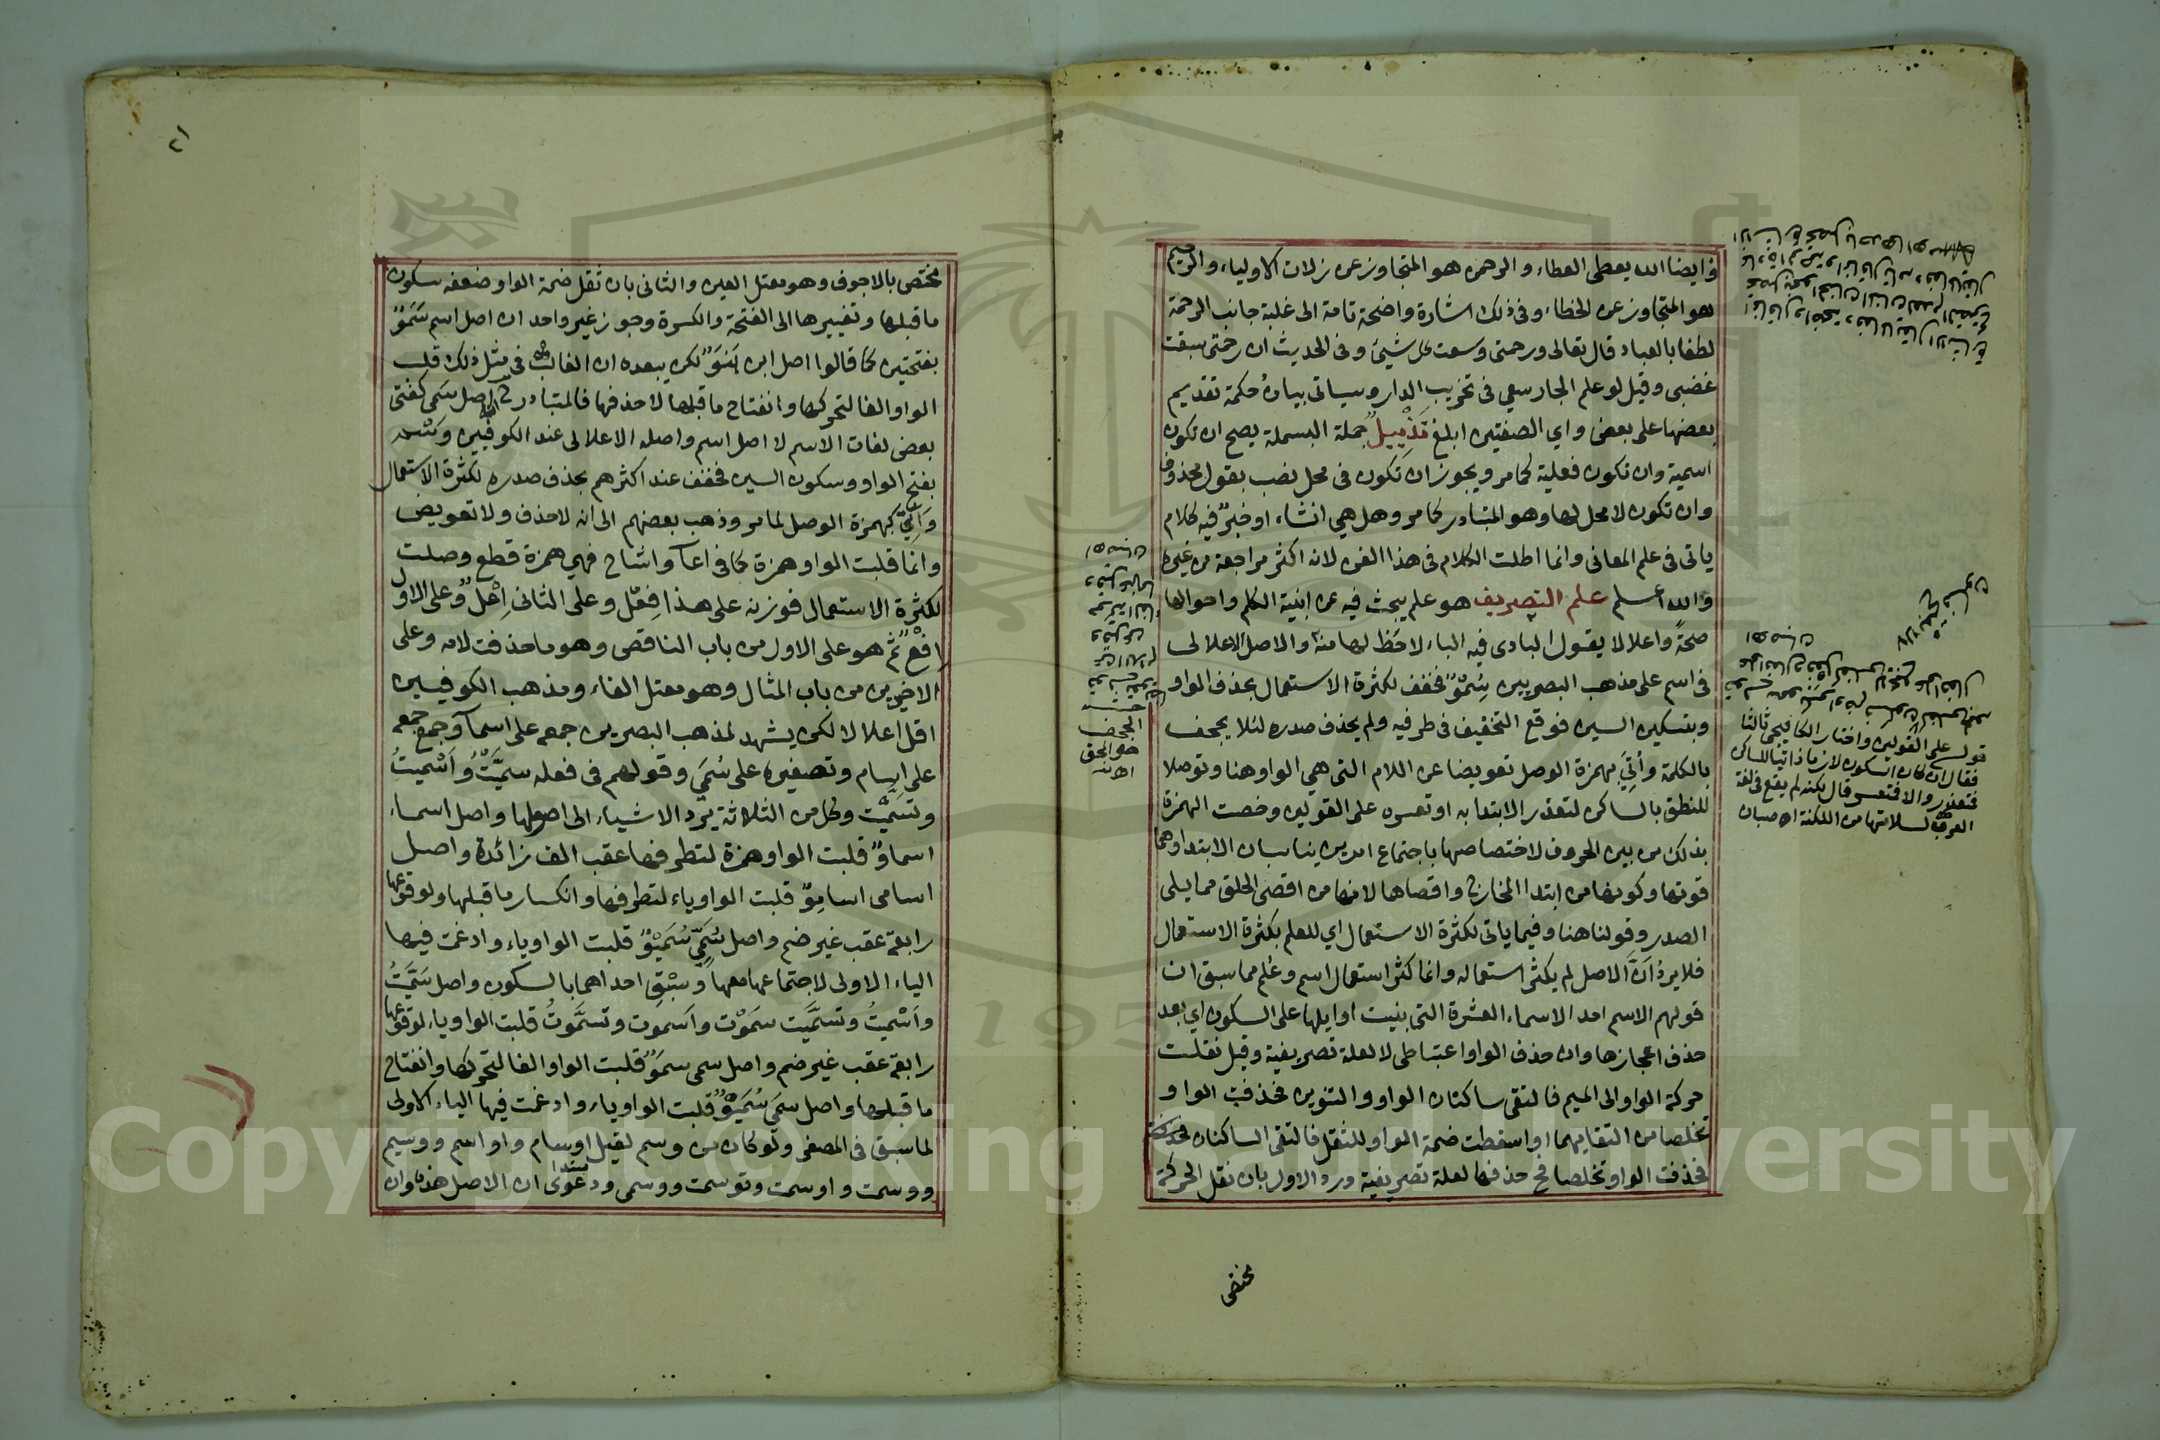 وايضا الله يعطى العطاء والرحمن هو المتجاوز عن زلات الاولياء والرحيم
هو المتجاوز عن الخطاء وفى ذلك اشارة واضحة تامة الى غلبة جانب الرحمة
لطفا بالعباد قال تعالى ورحمتى وسعت كل شيئ وفى الحديث ان رحمتى سبقت
غضبى وقيل لو علم الجار سعي فى تخريب الدار وسياتى بيان حكمة تقديم
بعضها على بعض واي الصفتين ابلغ تَذْيِيل جملة البسملة يصح ان تكون
اسمية وان تكون فعلية كما مر ويجوز ان تكون فى محل نصب بقول محذوف
وان تكون لا محل لها وهو المتبادر كما مر وهل هي انشاء او خبر فيه كلام
ياتى فى علم المعانى وانما اطلت الكلام فى هذا الفن لانه اكثر مراجعة من غيره
والله اعلم علم التصريف هو علم يبحث فيه عن ابنية الكلم واحوالها
صحةً واعلالا يقول البادى فيه الباء لاحَظ لها منه والاصل الاعلالى
فى اسم على مذهب البصريين سِمْوٌ فخفف لكثرة الاستعمال بحذف الواو
وبتسكين السين فوقع التخفيف فى طرفيه ولم يحذف صدره لئلا يجحف
بالكلمة واُتِيَ بهمزة الوصل تعويضا عن اللام التى هي الواو هنا وتوصلا
للنطق بالساكن لتعذر الابتدا به او تعسره على القولين وخصت الهمزة
بذلك من بين الحروف لاختصاصها باجتماع امرين يناسبان الابتدا وهما
قوتها وكونها من ابتدا المخارج واقصاها لانها من اقصى الحلق مما يلى
الصدر وقولنا هنا وفيما ياتى لكثرة الاستعمال اي للعلم بكثرة الاستعمال
فلا يرد اَنَّ الاصل لم يكثر استعماله وانما كثر استعمال اسم وعُلم مما سبق ان
قولهم الاسم احد الاسماء العشرة التى بنيت اوايلها على السكون اي بعد
حذف اعجازها وان حذف الواو اعتباطى لا لعلة تصريفية وقيل نقلت
حركة الواو الى الميم فالتقى ساكنان الواو والتنوين فحذفت الواو
تخلصا من التقايهما او اسقطت ضمة الواو للثقل فالتقى الساكنان
فحذفت الواو تخلصا فح حذفها لعلة تصريفية ورد الاول بان نقل الحركة
مختص
قوله على القولين واختار الكافيجى ثالثا
فقال ان كان السكون لازما ذاتيا للساكن
فتعذر والا فتعسر قال لكنه لم يقع فى لغة
العرب لسلامتها من اللكنة اه صبان
المجحف
هو المحق
٢١
مختص بالاجوف وهو معتل العين والثانى بان ثقل ضمة الواو ضعفه سكون
ما قبلها وتغييرها الى الفتحة والكسرة وجوز غير واحد ان اصل اسم سَمَوٌ
بفتحتين كما قالوا اصل ابن بَنَوٌ لكن يبعده ان الغالب فى مثل ذلك قلب
الواو الفا لتحركها وانفتاح ما قبلها لا حذفها فالمتبادر ح انه اصل سَمى كفتى
بعض لغات الاسم لا اصل اسم واصله الاعلالى عند الكوفيين وَسْم
بفتح الواو وسكون السين فخفف عند اكثرهم بحذف صدره لكثرة الاستعمال
واُتِيَ بهمزة الوصل لما مر وذهب بعضهم الى انه لا حذف ولا تعويض
وانما قلبت الواو همزة كما فى اعآ واشاح فهي همزة قطع وصلت
لكثرة الاستعمال فوزنه على هذا فِعْل وعلى الثانى اِعْلٌ وعلى الاول
افْعٌ ثم هو على الاول من باب الناقص وهو ما حذفت لامه وعلى
الاخيرين من باب المثال وهو معتل الفاء ومذهب الكوفيين
اقل اعلالا لكن يشهد لمذهب البصريين جمعه على اسمآ وجمع جمعه
على اسام وتصغيره على سُمَي وقولهم فى فعله سمَّيْتُ واَسْميتُ
وتسَمَّيْت وكل من الثلاثة يرد الاشياء الى اصولها واصل اسماء
اسماوٌ قلبت الواو همزة لتطرفها عقب الف زائدة واصل
اسامى اسامِوٌ قلبت الواو ياء لتطرفها وانكسار ما قبلها ولوقوعها
رابعة عقب غير ضم واصل سُمَيّ سُمَيْوٌ قلبت الواو ياء وادغمت فيها
الياء الاولى لاجتماعها معها وسَبْقِ احداهما بالسكون واصل سَمَّيْتُ
واَسْميتُ وتسَمَّيْت سمَوْت واَسموت وتسمَّوتُ قلبت الواو ياء لوقوعها
رابعة عقب غير ضم واصل سمى سمَوٌ قلبت الواو الفا لتحركها وانفتاح
ما قبلها واصل سمَي سُمَيْوٌ قلبت الواو ياء وادغمت فيها الياء الاولى
لما سبق فى المصغر ولو كان من وسم لقيل اوسام واواسم ووسيم
ووسمت واوسمت وتوسمت ووسمى ودعوى ان الاصل هذه وان